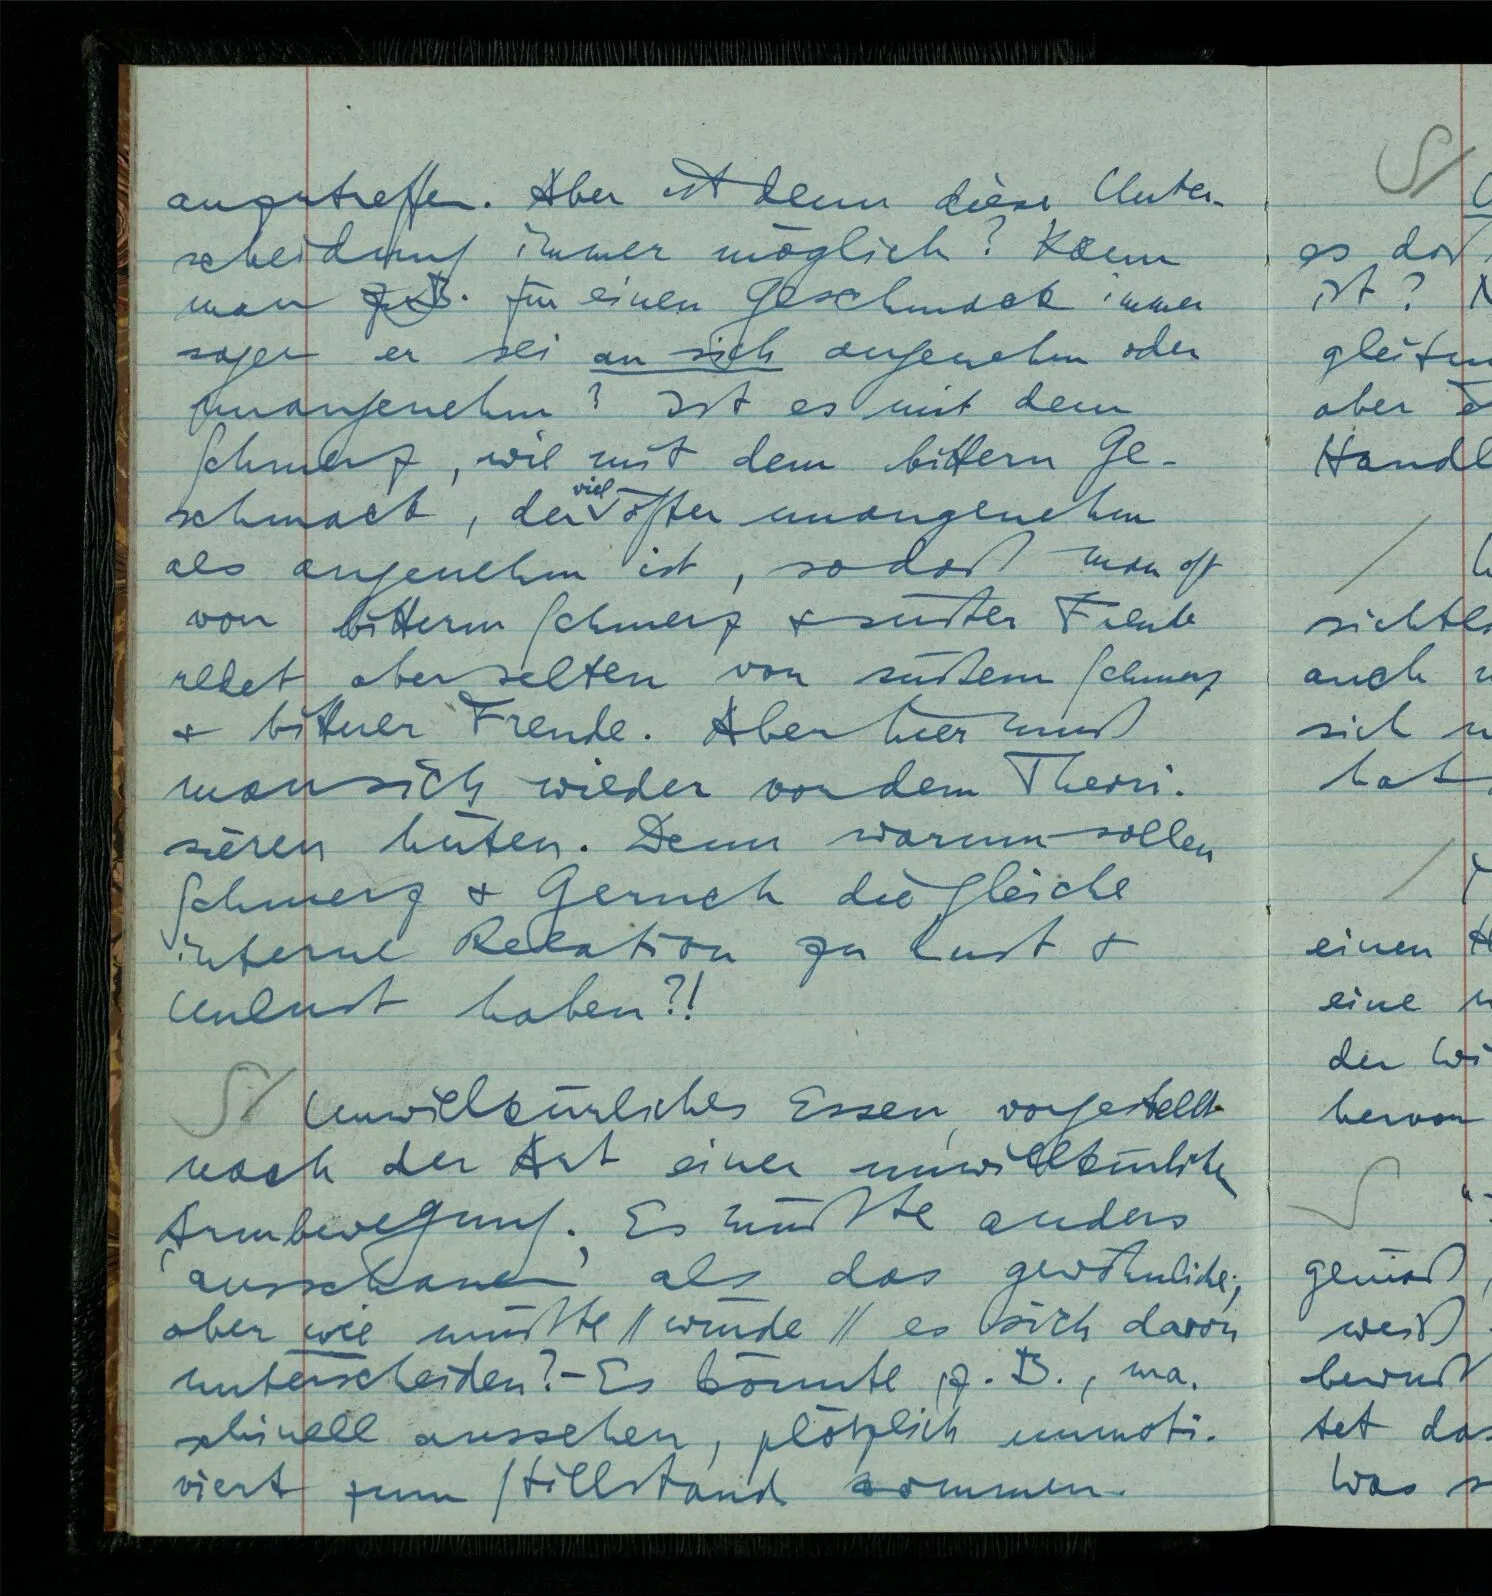 anzutreffen. Aber ist denn diese Unter-
scheidung immer möglich? Kann
man z.B. für einen Geschmack immer
sagen er sei an sich angenehm oder
unangenehm? Ist es mit dem
Schmerz, wie mit dem bittern Ge-
schmack, der viel öfter unangenehm
als angenehm ist, sodaß man oft
von bitterm Schmerz & süßer Freude
redet aber selten von süßem Schmerz
& bittrer Freude. Aber hier muß
man sich wieder vor dem Theori-
sieren hüten. Denn warum sollen
Schmerz & Geruch die gleiche
interne Relation zu Lust &
Unlust haben?!
S/ Unwillkürliches Essen, vorgestellt
nach der Art einer unwillkürlichen
Armbewegung. Es müßte anders
'ausschauen' als das gewöhnliche;
aber wie müßte // würde // es sich davon
unterscheiden?– Es könnte, z.B., ma-
schinell aussehen, plötzlich unmoti-
viert zum Stillstand kommen.
S/
es daß
ist?
aber
Handl
/
auch
sich
hat
/
einen
eine
der
hervor
S
gemäß,
weiß
bewußt
tet das
Was